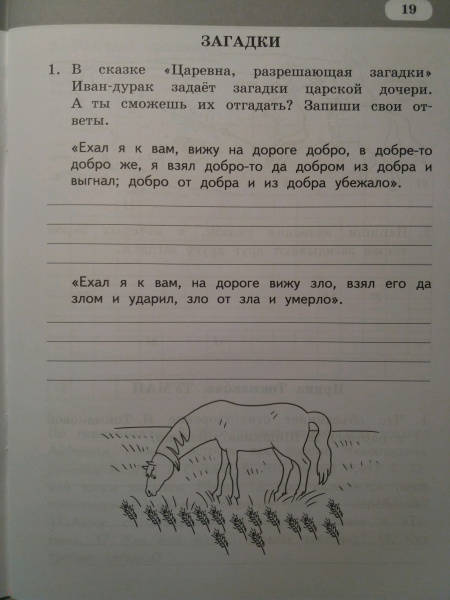 19
ЗАГАДКИ
1. В сказке «Царевна, разрешающая загадки»
Иван-дурак задаёт загадки царской дочери.
А ты сможешь их отгадать? Запиши свои от-
веты.
«Ехал я к вам, вижу на дороге добро, в добре-то
добро же, я взял добро-то да добром из добра и
выгнал; добро от добра и из добра убежало».
«Ехал я к вам, на дороге вижу зло, взял его да
злом и ударил, зло от зла и умерло».